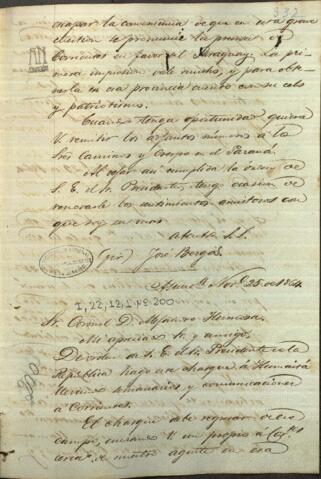 332
chapar la conveniencia de que en esta grave
cuestion se pronuncie la prensa de
Corrientes en favor del Paraguay. La pri-
mera impresion vale mucho, y para obte-
nerla en esa provincia cuento con su celo
y patriotismo.
Cuando tenga oportunidad quiera
V. remitir los adjuntos numeros a los
Sres Caminos y en el Paraná.
Al dejar así cumplida la orden de
S. E. el Sr. Presidente, tengo ocasion de
renovarle los sentimientos amistosos con
que soy su mas
atento S. S.
(fir) José Berges
Nov. 25 de 1864.
I, 22, 12, 1 Nº 200
Sr. Coronel D. Hermosa.
Mi apreciado Sr. y amigo.
De orden de S. E. el Sr. Presidente de la
República hago un chasque á Humaitá
semanarios y comunicaciones
á Corrientes.
El chasque debe regresar de ese
campo, enviando V. un propio a
cerca de nuestro agente en esa